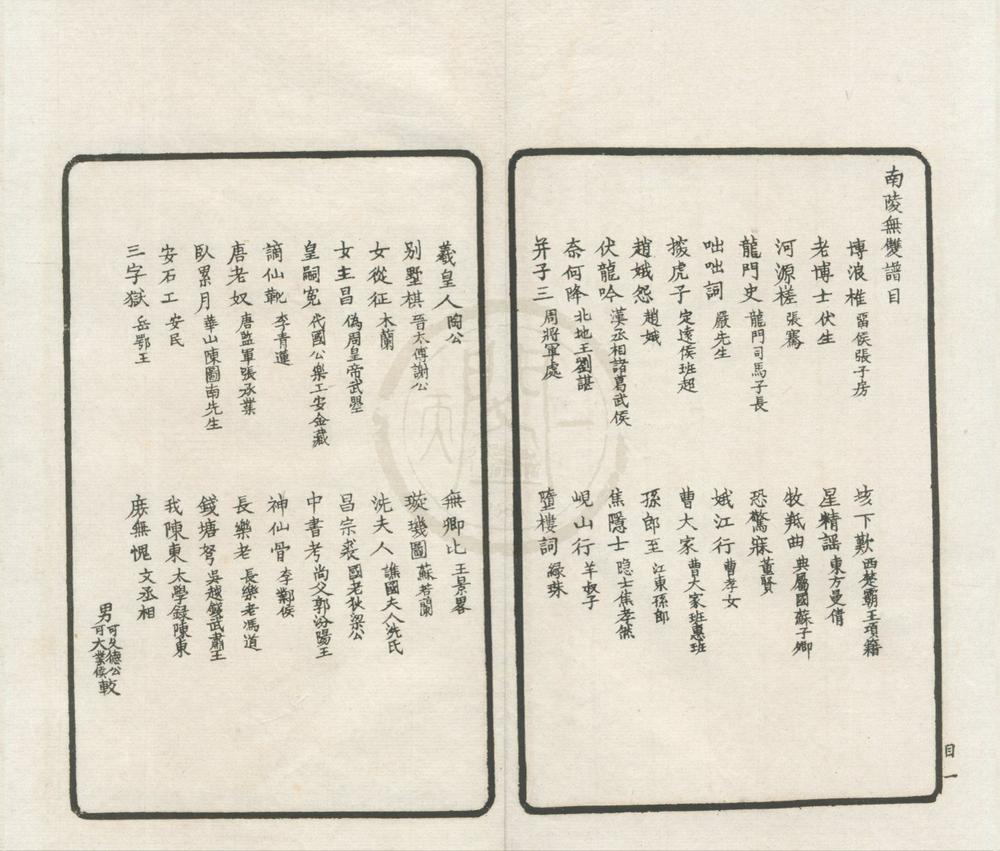 南陵無雙譜目
博浪椎 畱侯張子房 垓下歎 西楚霸王項籍
老博士 伏生 星精謠 東方曼倩
河源槎 張騫 牧羝曲 典屬國蘇子卿
龍門史 龍門司馬子長 恐驚寐 董賢
咄咄詞 嚴先生 娥江行 曹孝女
探虎子 定遠侯班超 曹大家 曹大家班惠班
趙娥怨 趙娥 孫郎至 江東孫郎
伏龍吟 漢丞相諸葛武侯 焦隱士 隐士焦孝然
奈何降 北地王劉諶 峴山行 羊叔子
并子三 周將軍處 墮樓詞 綠珠
目一
羲皇人 陶公 無卿比 王景畧
别墅棋 晉太傅謝公 璇璣圖 蘇若蘭
女從征 木蘭 洗夫人 譙國夫人洗氏
女主昌 偽周皇帝武曌 昌宗裘 國老狄梁公
皇嗣寃 代國公樂工安金藏 中書考 尚父郭汾陽王
謫仙靴 李青蓮 神仙骨 李鄴侯
唐老奴 唐監軍張承業 長樂老 長樂老馮道
臥累月 華山陳圖南先生 錢塘弩 吳越錢武肅王
安石工 安民 我陳東 太學録陳東
三字獄 岳鄂王 庶無愧 文丞相
男 可久德公 可大業侯 較